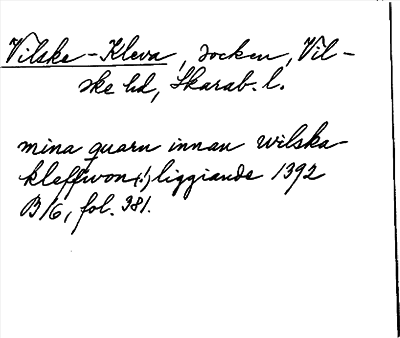 Vilske-Kleva, socken, Vil-
ske hd, Skarab. l.
mina quarn innan wilska-
kleffwon (!) liggiande 1392
B 16, fol. 381.